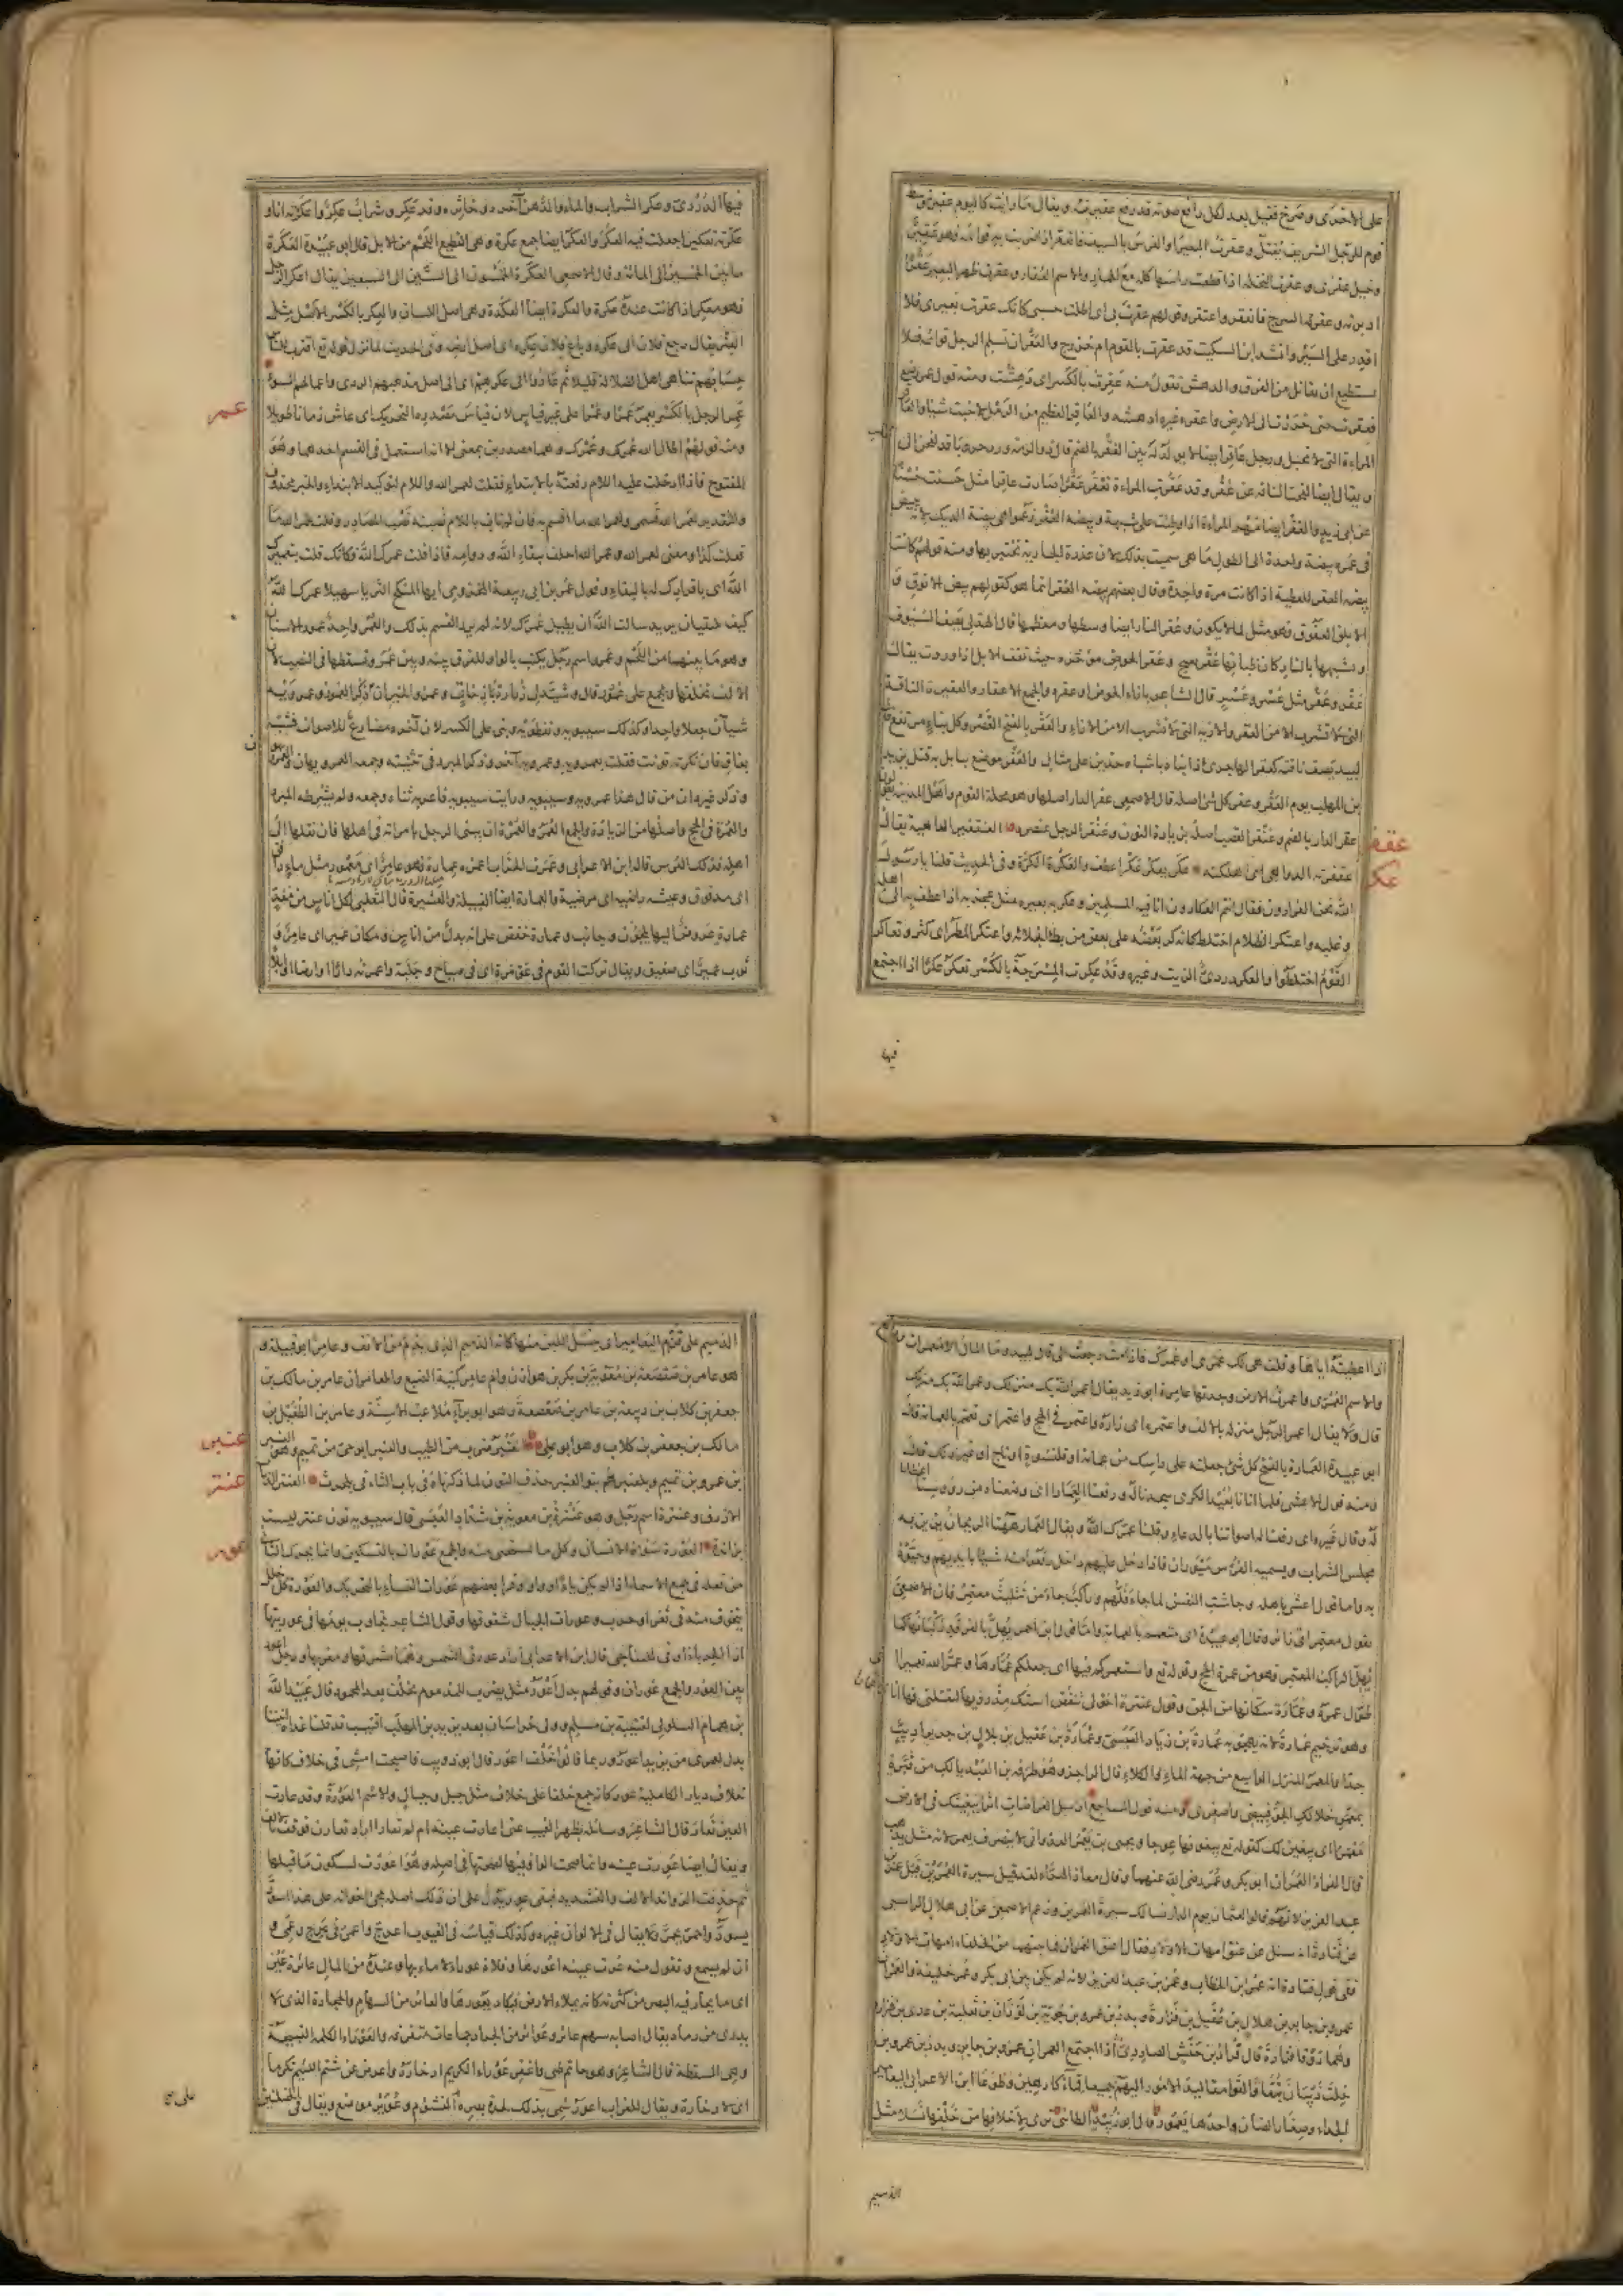 على الاخرى وصرخ فقيل بعد لكل رافع صوته قد رفع عقيرته ويقال ما رايت كاليوم عقيرة وسط
قوم للرجل الشريف يقتل وعقرت البعير او الفرس بالسيف فانعقر اذا ضربت به قوائمه فهو عقير
وخيل عقرى وعقرت النخلة اذا قطعت راسها كله مع الجمار والاسم العقار وعقرت ظهر البعير عقرا
ادبرته وعقره السرج فانعقر واعتقر وقولهم عقرت بى اى اطلت حبسى كانك عقرت بعيرى فلا
اقدر على السير وانشد ابن السكيت قد عقرت بالقوم ام خزرج والعقر ان تسلم الرجل قوائمه فلا
يستطيع ان يقاتل من الفرق والدهش تقول منه عقرت بالكسر اى دهشت ومنه قول عمر رضى
فعقرت حتى خررت الى الارض واعقره غيره ادهشه والعاقر العظيم من الرمل لا ينبت شيئا والعاقر
المراءة التى لا تحبل ورجل عاقر ايضا لا يولد له بين العقر بالضم
ويقال ايضا لقحت الناقة عن عقر وقد عقرت المراءة تعقر عقرا صارت عاقرا مثل حسنت حسنا
عن ابى زيد والعقر ايضا مهر المراءة اذا وطئت على شبهة وبيضة العقر زعموا هى بيضة الديك لانه يبيض
فى عمره بيضة واحدة الى الطول ما هى سميت بذلك لان عذرة الجارية تختبر بها ومنه قولهم كانت
بيضة العقر للعطية اذا كانت مرة واحدة وقال بعضهم بيضة العقر انما هو كقولهم بيض الانوق و
الابلق العقوق فهو مثل لما لا يكون وعقر النار ايضا وسطها ومعظمها قال الهذلى يصف السيوف
وشبهها بالنار كان ظباتها عقر بعيج وعقر الحوض موخره حيث تقف الابل اذا وردت يقال
عقر وعقر مثل عسر وعسر قال الشاعر بازاء الحوض او عقره والجمع الاعقار والعقرة الناقة
التى لا تشرب الا من العقر والازية التى لا تشرب الا من الازاء والعقر بالفتح القصر وكل بناء مرتفع قال
لبيد يصف ناقته كعقر الهاجرى اذا ابتناه باشباه حذين على مثال والعقر موضع ببابل به قتل يزيد
بن المهلب يوم العقر وعقر كل شئ اصله قال الاصمعى عقر الدار اصلها وهو محلة القوم واهل المدينة يقولون
عقر الدار بالضم
عقفر
عكر
الله نحن الفرارون فقال انتم العكارون انا فية المسلمين وعكر به بعيره مثل عجر به اذا عطف به الى اهله
وغلبه واعتكر الظلام اختلط كانه كر بعضه على بعض من بطء انجلائه واعتكر المطر اى كثر وتعاكر
القوم اختلطوا والعكر دردى الزيت وغيره وقد عكرت المسرجة بالكسر تعكر عكرا اذا اجتمع
فيها
فيها الدردى وعكر الشراب والماء والدهن آخره وخاثره وقد عكر وشراب عكر واعكرته انا و
عكرته تعكيرا جعلت فيه العكر والعكر ايضا جمع عكرة وهى القطيع الضخم من الابل قال ابو عبيدة العكرة
ما بين الخمسين الى المائة وقال الاصمعى العكرة الخمسون الى الستين الى السبعين يقال اعكر الرجل
فهو معكر اذا كانت عنده عكرة والعكرة ايضا العكدة وهى اصل اللسان والعكر بالكسر الاصل مثل
العتر يقال رجع فلان الى عكره وباع فلان عكره اى اصل ارضه وفى الحديث لما نزل قوله تع اقترب للناس
حسابهم تناهى اهل الضلالة قليلا ثم عادوا الى عكرهم اى الى اصل مذهبهم الردى واعمالهم السوء
عمر
عمر الرجل بالكسر يعمر عمرا وعمرا على غير قياس لان قياس مصدره التحريك اى عاش زمانا طويلا
ومنه قولهم اطال الله عمرك وعمرك وهما مصدران بمعنى الا انه استعمل فى القسم احدهما وهو
المفتوح فاذا ادخلت عليه اللام رفعته بالابتداء فقلت لعمر الله واللام لتوكيد الابتداء والخبر محذوف
والتقدير لعمر الله قسمى ولعمر الله ما اقسم به فان لم تات باللام نصبته نصب المصادر وقلت عمر الله ما
فعلت كذا ومعنى لعمر الله وعمر الله احلف ببقاء الله ودوامه فاذا قلت عمرك الله فكانك قلت بتعميرك
الله اى باقرارك له بالبقاء وقول عمر بن ابى ربيعة المخزومى ايها المنكح الثريا سهيلا عمرك الله
كيف يلتقيان يريد سالت الله ان يطيل عمرك لانه لم يرد القسم بذلك والعمر واحد عمور الاسنان
وهو ما بينهما من اللحم وعمرو اسم رجل يكتب بالواو للفرق بينه وبين عمر وتسقطها فى النصب لان
الالف تخلفها والجمع على عمور قال
شيان جعلا واحدا وكذلك سيبويه ونفطويه وبنى على الكسر لان آخره مضارع للاصوات فشبه
بغاق فان نكرته نونت فقلت بعمرويه وعمرويه آخر وذكر المبرد فى تثنيته وجمعه
وذكر غيره ان من قال هذا عمرويه وسيبويه ورايت سيبويه فاعربه ثناه وجمعه ولم يشرطه المبرد
والعمرة فى الحج واصلها من الزيارة والجمع العمر والعمرة ان يبنى الرجل بامراته فى اهلها فان نقلها الى
اهله فذلك العرس قاله ابن الاعرابى وعمرت الخراب اعمره عمارة فهو عامر اى معمور مثل ماء دافق
اى مدفوق وعيشة راضية اى مرضية والعمارة ايضا القبيلة والعشيرة قال التغلبى لكل اناس من معد
عمارة عروض اليها يلجئون وجانب وعمارة خفض على انه بدل من اناس ومكان عمير اى عامر و
ثوب عمير اى صفيق ويقال تركت القوم فى عومرة اى فى صياح وجلبة واعمرته دارا او ارضا او ابلا
اذا اعطيته اياها وقلت هى لك عمرى او عمرك فاذا مت رجعت الى قال لبيد وما المال الا معمرات
والاسم العمرى واعمرت الارض وجدتها عامرة ابو زيد يقال عمر الله بك منزلك واعمر الله بك منزلك
قال ولا يقال اعمر الرجل منزله بالالف واعتمره اى زاره واعتمر فى الحج واعتمر اى تعمم بالعمامة قال
ابو عبيدة العمارة بالفتح كل شئ جعلته على راسك من عمامة او قلنسوة او تاج او غير ذلك قال
ومنه قول الاعشى فلما اتانا بعيد الكرى سجدنا له ورفعنا العمارا اى وضعناه من رؤوسنا اعظاما
له وقال غيره اى رفعنا له اصواتنا بالدعاء وقلنا عمرك الله ويقال العمار ههنا الريحان يزين به
مجلس الشراب ويسميه الفرس ميوران فاذا دخل عليهم داخل رفعوا منه شيئا بايديهم وحيوه
به واما قول اعشى باهله وجاشت النفس لما جاء فلهم وراكب جاء من تثليث معتمر فان الاصمعى
يقول معتمر اى زائر وقال ابو عبيدة اى متعمم بالعمامة واما قول ابن احمر يهل بالفرقد ركبانها كما
يهل الراكب المعتمر فهو من عمرة الحج وقوله تع واستعمركم فيها اى جعلكم عمارها وعمر الله تعميرا
طول عمره وعمار سكانها من الجن وقول عنترة احولى تنفض استك مذرويها لتقتلنى فها انا ذا عمارا
وهو ترخيم عمارة لانه يهجو به عمارة بن زياد العبسى وعمارة بن عقيل بن بلال بن جرير اديب
جدا والمعمر المنزل الواسع من جهة الماء والكلاء قال الراجز وهو طرفة بن العبد يا لك من قبرة
بمعمر خلا لك الجو فبيضى واصفرى ومنه قول الساجع ارسل العراضات اثرا يبغينك فى الارض
معمرا اى يبغين لك كقوله تع يبغونها عوجا ويحيى بن يعمر العدوانى لا ينصرف يعمر لانه مثل يذهب
قال الفراء العمران ابو بكر وعمر رضى الله عنهما وقال معاذ الهراء لقد قيل سيرة العمرين قبل عمر بن
عبد العزيز لانهم قالوا لعثمان يوم الدار نسالك سيرة العمرين وزعم الاصمعى عن ابى هلال الراسبى
عن قتادة انه سئل عن عتق امهات الاولاد فقال اعتق العمران فما بينهما من الخلفاء امهات الاولاد
ففى قول قتادة انه عمر بن الخطاب وعمر بن عبد العزيز لانه لم يكن بين ابى بكر وعمر خليفة والعمران
عمرو بن جابر بن هلال بن عقيل بن فزارة وبدر بن عمرو بن جوية بن لوذان بن ثعلبة بن عدى بن فزارة
وهما روقا فزارة قال قراد بن حنش الصاردى اذا اجتمع العمران عمرو بن جابر وبدر بن عمرو
خلت ذبيان تبعا والقوا مقاليد الامور اليهم جميعا قماء كارهين وطوعا ابن الاعرابى اليعامير
الجداء وصغار الضان واحدها يعمور قال ابو زبيد الطائى ترى لاخلافها من خلفها نسلا مثل
الذميم
الذميم على قزم اليعامير اى ينسل اللبن منها كانه الذميم الذى يذم من الانف وعامر ابو قبيلة و
هو عامر بن صعصعة بن معوية بن بكر بن هوازن وام عامر كنية الضبع والعامران عامر بن مالك بن
جعفر بن كلاب بن ربيعة بن عامر بن صعصعة وهو ابو براء ملاعب الاسنة وعامر بن الطفيل بن
عنبر
مالك بن جعفر بن كلاب وهو ابو على العنبر ضرب من الطيب والعنبر ابو حى من تميم وهو العنبر
عنتر
بن عمرو بن تميم وبلعنبر هم بنو العنبر حذف النون لما ذكرناه فى باب الثاء فى بلحرث العنتر الذباب
الازرق وعنترة اسم رجل وهو عنترة بن معوية بن شداد العبسى قال سيبويه نون عنتر ليست
عور
بزائدة العورة سوءة الانسان وكل ما يستحيى منه والجمع عورات بالتسكين وانما يحرك الثانى
من فعلة فى جمع الاسماء اذا لم يكن ياء او واو وقرا بعضهم عورات النساء بالتحريك والعورة كل خلل
يتخوف منه فى ثغر او حرب وعورات الجبال شقوقها وقول الشاعر تجاوب بومها فى عورتيها
اذا الحرباء اوفى للتناجى قال ابن الاعرابى اراد عورتى الشمس وهما مشرقها ومغربها ورجل اعور
بين العور والجمع عوران وقولهم بدل اعور مثل يضرب للمذموم يخلف بعد المحمود قال عبيد الله
بن همام السلولى لقتيبة بن مسلم وولى خراسان بعد يزيد بن المهلب اقتيب قد قلنا غداة اتيتنا
بدل لعمرك من يزيد اعور وربما قالوا خلف اعور قال ابو ذويب فاصبحت امشى فى خلاف كانها
خلاف ديار الكاملية عور كانه جمع خلفا على خلاف مثل جبل وجبال والاسم العورة وقد عارت
العين تعار قال الشاعر وسائلة بظهر الغيب عنى اعارت عينه ام لم تعارا اراد تعارن فوقف بالالف
ويقال ايضا عورت عينه وانما صحت الواو فيها لصحتها فى اصله وهو اعورت لسكون ما قبلها
ثم حذفت الزوائد الالف والتشديد فبقى عور يدل على ان ذلك اصله مجئ اخواته على هذا اسود
يسود واحمر يحمر ولا يقال فى الالوان غيره وكذلك قياسه فى العيوب اعرج واعمى فى عرج وعمى و
ان لم يسمع وتقول منه عرت عينه اعورها وفلاة عوراء لا ماء بها وعنده من المال عائرة عين
اى ما يحار فيه البصر من كثرته كانه يملاء الارض فيكاد يعورها والعائر من السهام والحجارة الذى لا
يدرى من رماه يقال اصابه سهم عائر وعوائر من الجراد جماعات متفرقة والعوراء الكلمة القبيحة
وهى السقطة قال الشاعر وهو حاتم طيى واغفر عوراء الكريم ادخاره واعرض عن شتم اللئيم تكرما
اى لادخاره ويقال للغراب اعور سمى بذلك لحدة بصره على التشؤم وعوير موضع ويقال فى الخصلتين